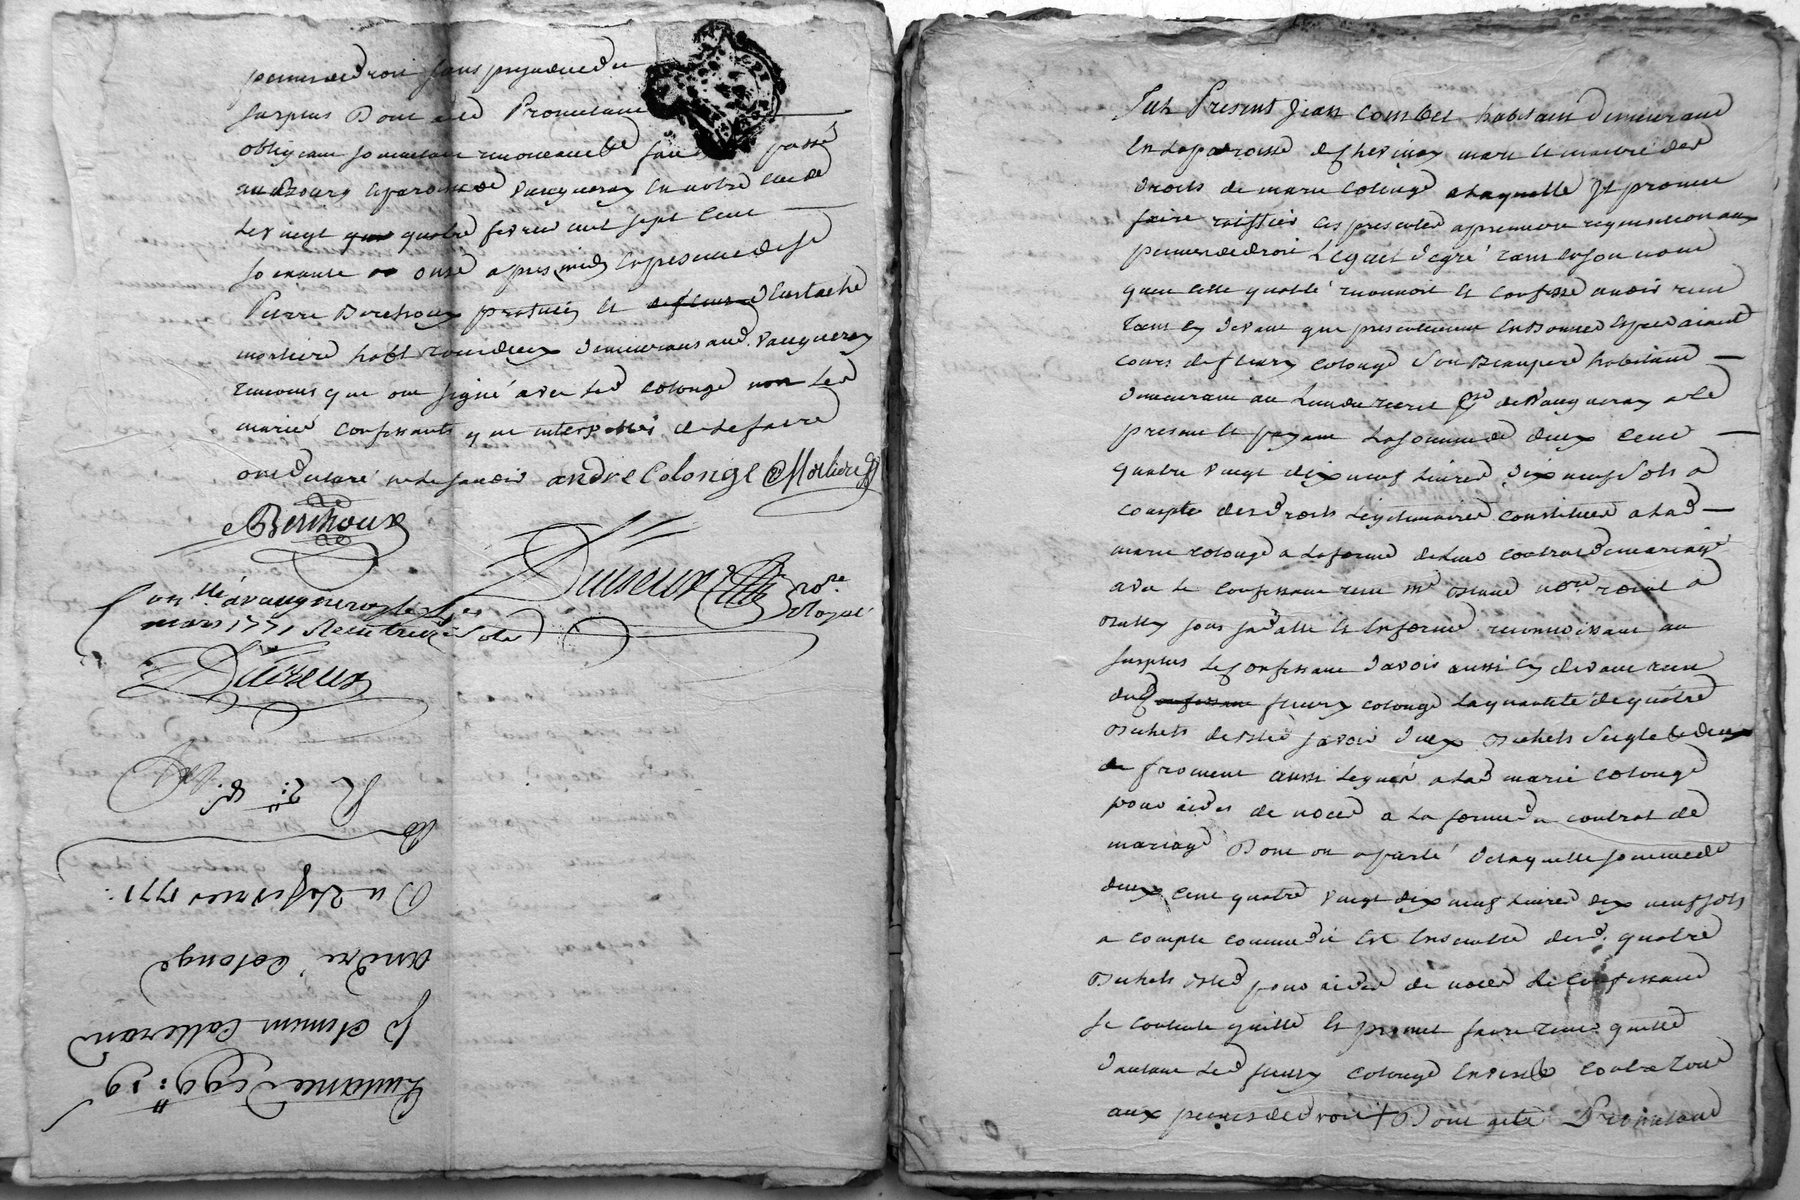 peines de droit sans prejudice du
surplus Dont acte Promettant
obligeant soumettant renonceant &c fait passé
au Bourg et paroisse de Vaugneray en notre etude
Le vingt quatre fevrier mil sept cent
soixante onze apres midy en presence de sr
Pierre Berthoux praticien et Eustache
morliere demeurans aud. Vaugneray
temoins qui ont signé avec led colonge non led
marié confessants qui interpellés de le faire
ont declaré ne le savoir andré Colonge Morliere
Berthoux
Duvieux nore Royal
con.lé a vaugneray le
mars 1771 Recu treize sols
Duvieux
Du 24 fevrier 1771:
andré Colonge
Quittance de 299:# 19s
Fut Present Jean Combet habitant demeurant
en la paroisse de Chevinay mari et maitre des
droits de marie Colonge a laquelle il promet
faire ratiffier ces presentes a premiere requisition aux
peines de droit Lequel de gré tant en son nom
qu'en cette qualité reconnoit et confesse avoir reçu
tant cy devant que presentement en Bonnes Especes aiant
cours de fleury colonge son Beaupere habitant
demeurant au de Vaugneray a ce
present et payant La somme de deux cent
quatre vingt dix neuf Livres dix neuf sols a
compte des droits Legitimaires constitués a lad
marie colonge a la forme de leur contrat de mariage
avec le confessant reçu me nore roial a
sous sa datte et en forme reconnoissant au
surplus Le confessant d'avoir aussi cy devant reçu
dud fleury colonge La quantité de quatre
Bichets de bled savoir deux Bichets seigle & deux
froment aussi legués a lad marie colonge
pour aides de noces a la forme du contrat de
mariage Dont on a parlé de laquelle somme de
deux cent quatre vingt dix neuf Livres dix neuf sols
a compte comme dit est Ensemble desd. quatre
Bichets bled pour aides de noces Le confessant
se contente quitte et promet faire tenir quitte
d'autant Led fleury colonge envers & contre tous
aux peines de droit + Dont acte Promettant